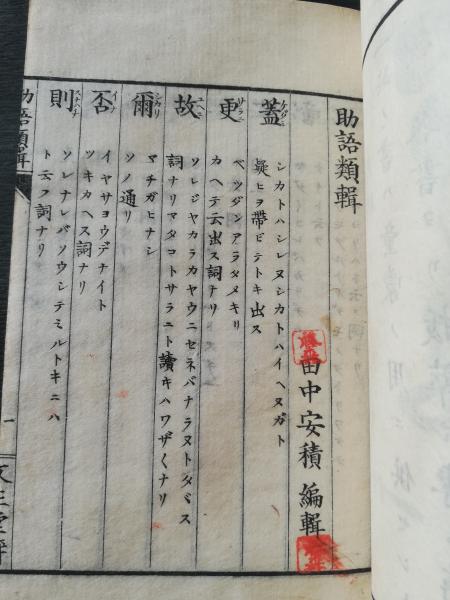 助語類輯
田中安積 編輯
蓋 ケダシ
シカトハシレヌシカトハイヘヌガト
疑ヒヲ帯ビテトキ出ス
更 サラニ
ベツダンアラタメキリ
カヘテ云出ス詞ナリ
故
ソレジヤカラカヤウニセネバナラヌトタバス
詞ナリマタコトサラニト讀キハワザ〱ナリ
爾 シカリ
マチガヒナシ
ソノ通リ
否 イナ
イヤサヨウデナイト
ツキカヘス詞ナリ
則 スナハチ
ソレナレバソウシテミルトキニハ
ト云フ詞ナリ
助語類輯
一